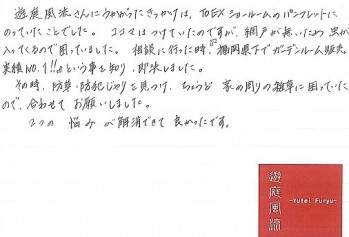 遊庭風流さんにうかがったきっかけは、TOEXショールームのパンフレットに
のっていたことでした。ココマはつけていたのですが、網戸が無いため 虫が
入ってくるので困っていました。相談に行った時、『福岡県下でガーデンルーム販売
実績NO.1!!』という事を知り、即決しました。
その時、防草・防犯じゃりを見つけ、ちょうど 家の周りの雑草に困っていた
ので、合わせて お願いしました。
2つの 悩みが解消できて 良かったです。
遊庭風流
-Yutei Furyu-